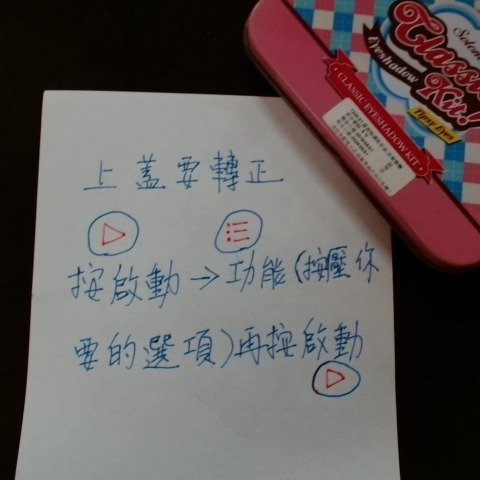 上蓋要轉正
按啟動→功能(按壓你
要的選項)再按啟動
Classic
Eyeshadow
Kit!
Tiger Eyes
CLASSIC EYESHADOW KIT